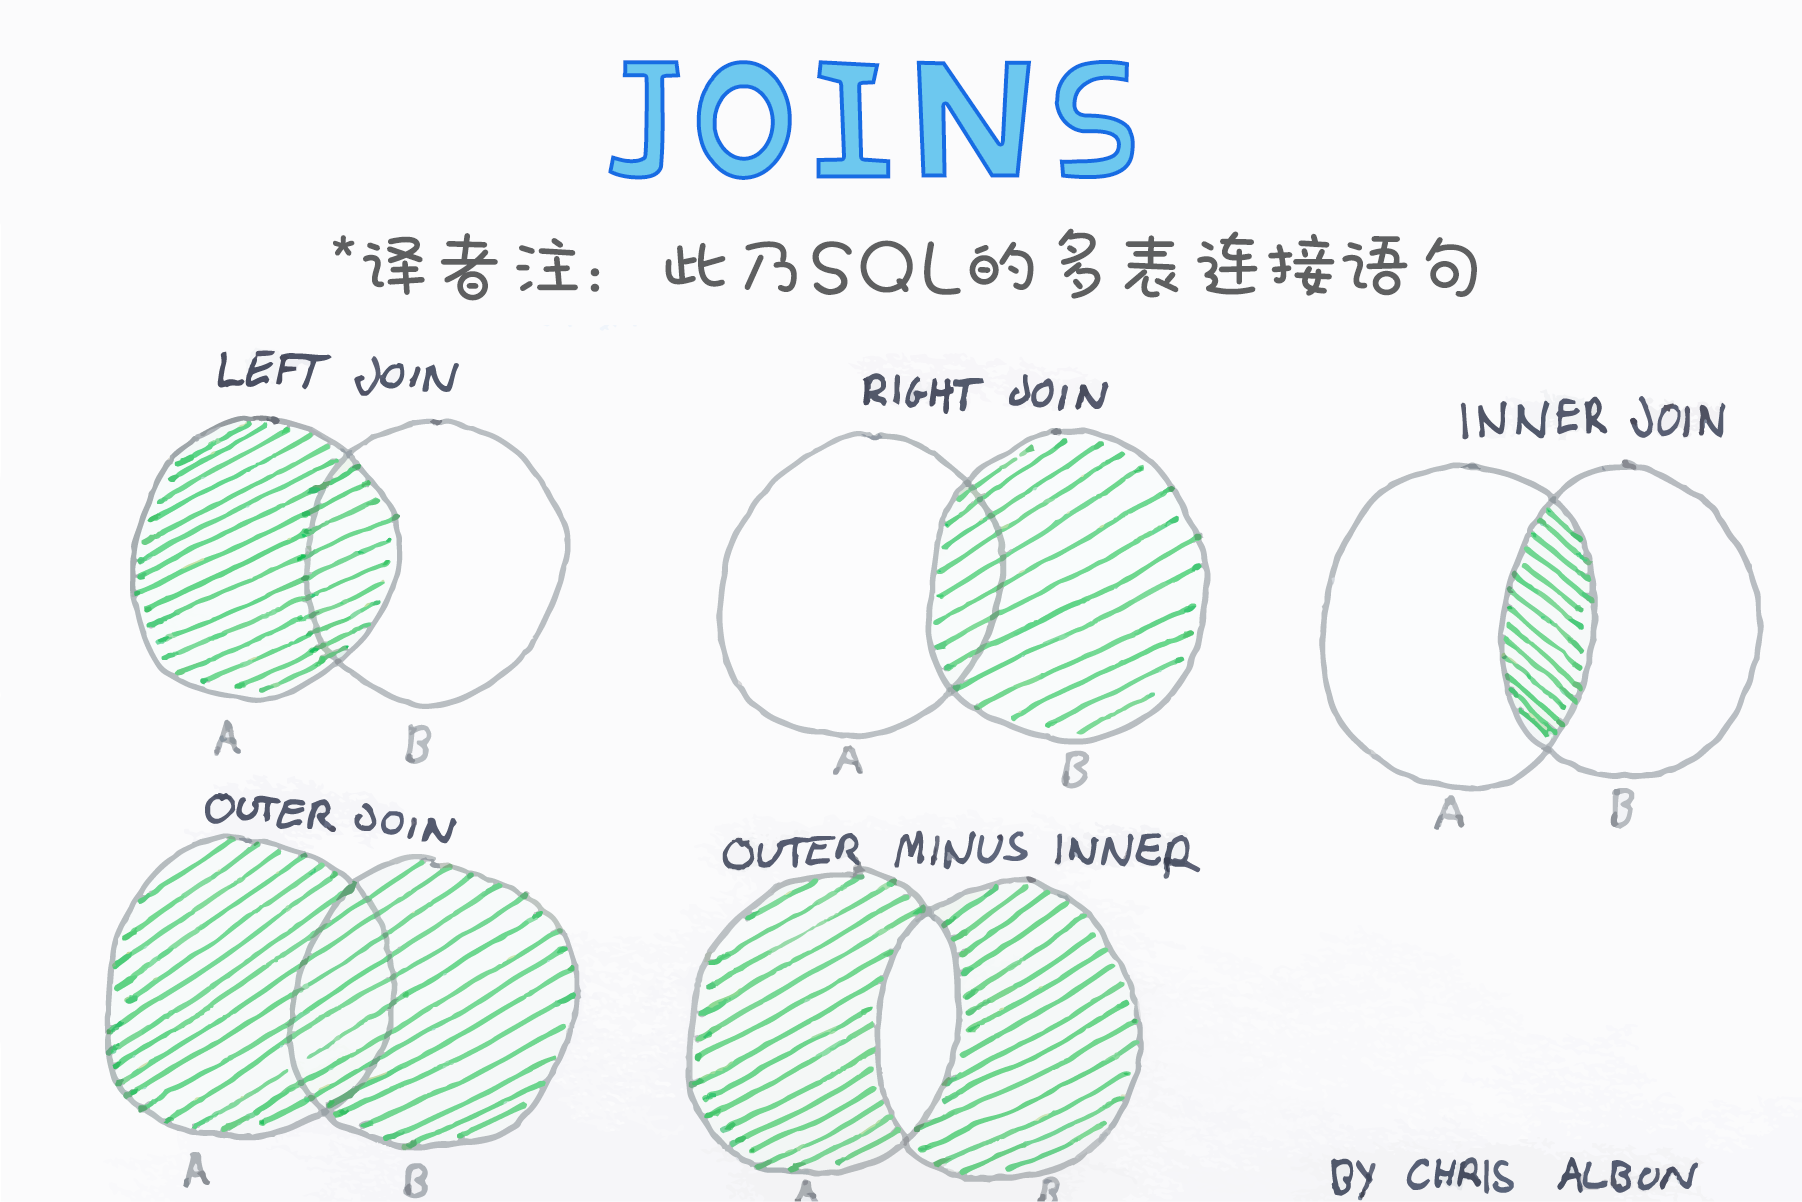 JOINS
*译者注：此乃SQL的多表连接语句
LEFT JOIN
RIGHT JOIN
INNER JOIN
A
B
A
B
A
B
OUTER JOIN
OUTER MINUS INNER
A
B
A
B
BY CHRIS ALBON